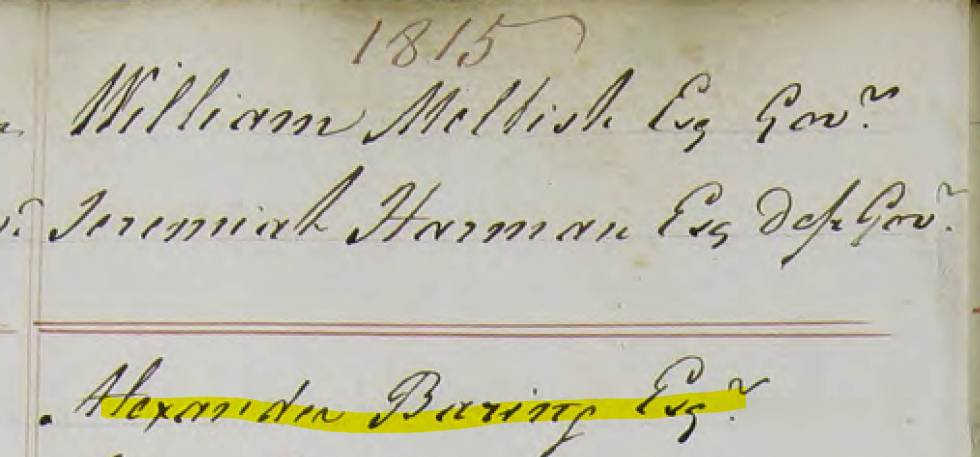 1815
William Mellish Esq Govr.
Jeremiah Harman Esq Dep Govr.
Alexander Baring Esqr.